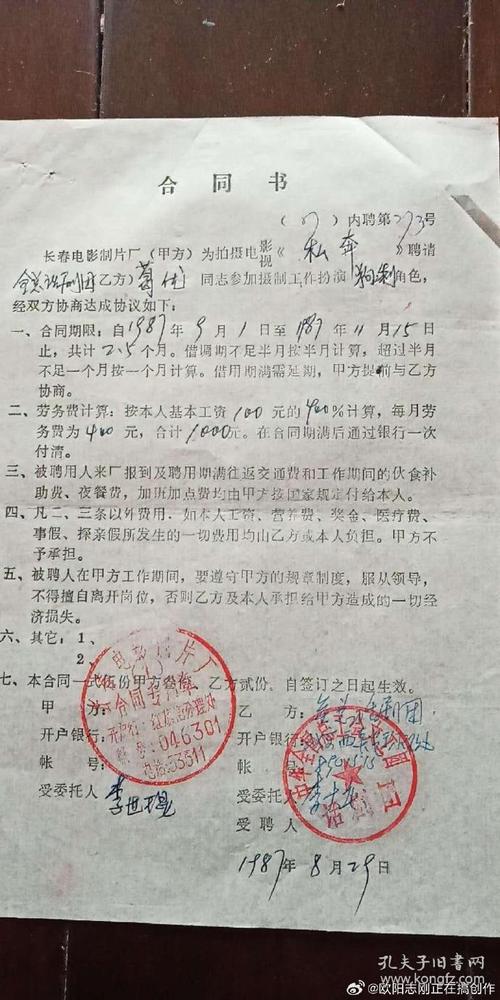 合同书
(87)内聘第273号
长春电影制片厂(甲方)为拍摄电影视《私奔》聘请
全总话剧团(乙方)葛优同志参加摄制工作扮演狗剩角色,
经双方协商达成协议如下:
一、合同期限:自1987年9月1日至1987年11月15日
止,共计2.5个月。借调期不足半月按半月计算,超过半月
不足一个月按一个月计算。借用期满需延期,甲方提前与乙方
协商。
二、劳务费计算:按本人基本工资100元的400%计算,每月劳
务费为400元,合计1000元。在合同期满后通过银行一次
付清。
三、被聘用人来厂报到及聘用期满往返交通费和工作期间的伙食补
助费、夜餐费,加班加点费均由甲方按国家规定付给本人。
四、凡二、三条以外费用,如本人工资、营养费、奖金、医疗费、
事假、探亲假所发生的一切费用均由乙方或本人负担。甲方不
予承担。
五、被聘人在甲方工作期间,要遵守甲方的规章制度,服从领导,
不得擅自离开岗位,否则乙方及本人承担给甲方造成的一切经
济损失。
六、其它:1、
2、
七、本合同一式伍份甲方叁份,乙方贰份,自签订之日起生效。
甲方:
开户银行:
帐号:
受委托人:李世
乙方:全总话剧团
开户银行:
帐号:
受委托人:李
受聘人:
1987年8月29日
电影制片厂
合同专用章
开户行:红旗街办理处
帐号:046301
电话:53311
中华全国总工会文工团
话剧团
孔夫子旧书网
kongfz.com
@欧阳志刚正在搞创作